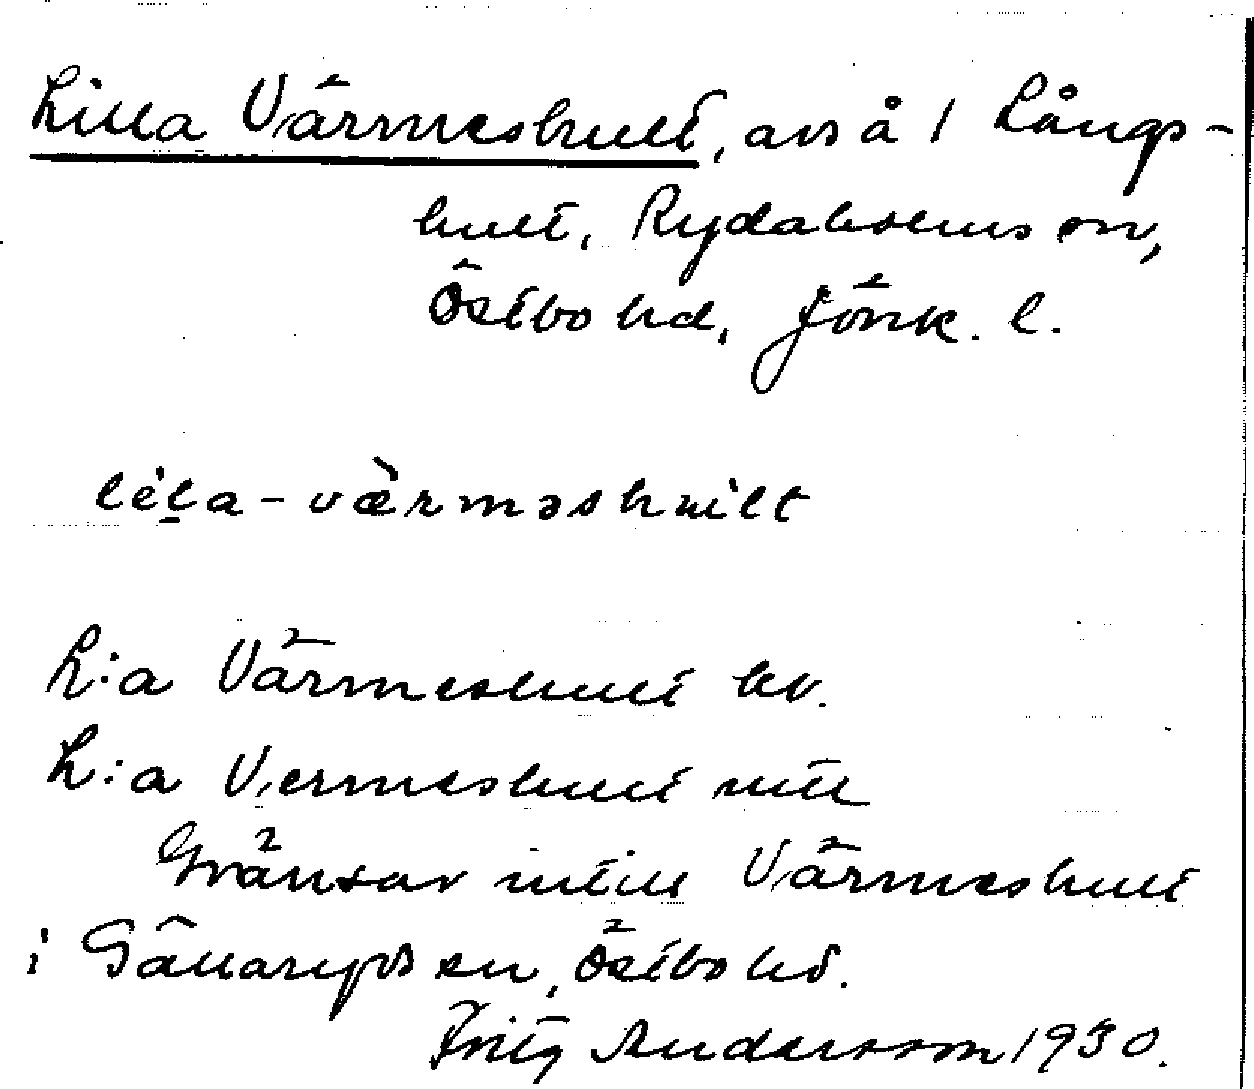 Lilla Värmeshult, avs å 1 Långs-
hult, Rydaholms sn,
Östbo hd, Jönk. l.
lėla-væ̀rməshult
L:a Värmeshult kv.
L:a Vermeshult
Gränsar intill Värmeshult
i Gällaryds sn, Östbo hd.
Fritz Andersson 1930.